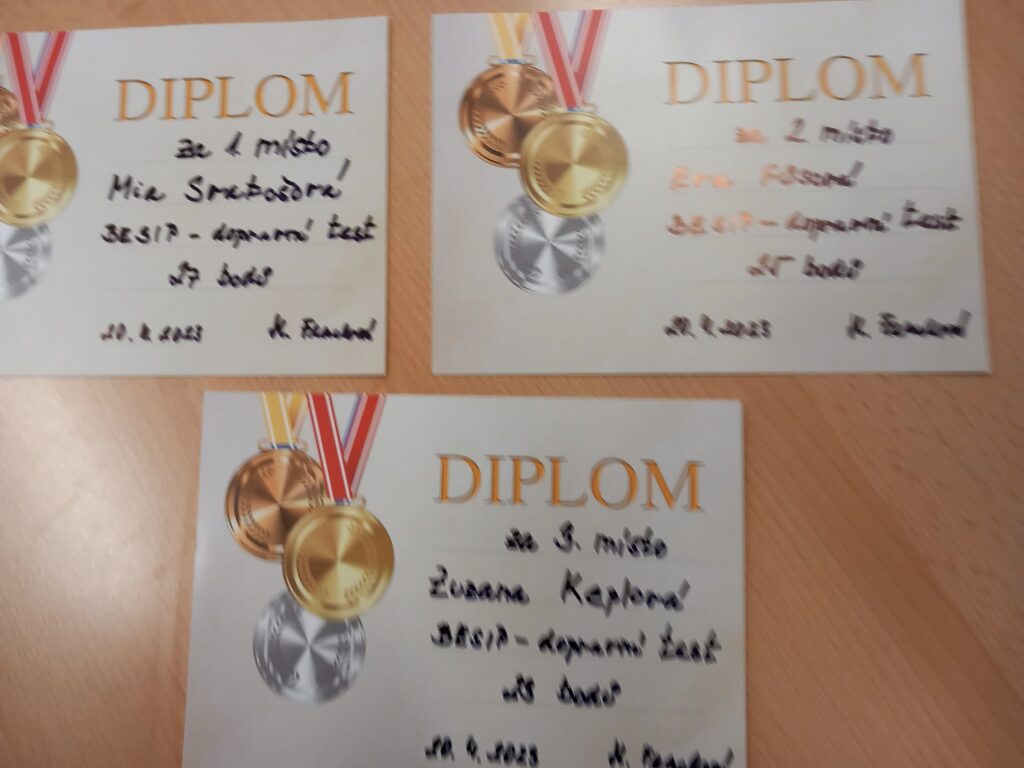 DIPLOM
za 1. místo
Mia
BESIP - dopravní test
27 bodů
20.4.2023
DIPLOM
za 2 místo
Eva
BESIP - dopravní test
25 bodů
20.4.2023
DIPLOM
za 3. místo
Zuzana Kaplová
BESIP - dopravní test
bodů
20.4.2023